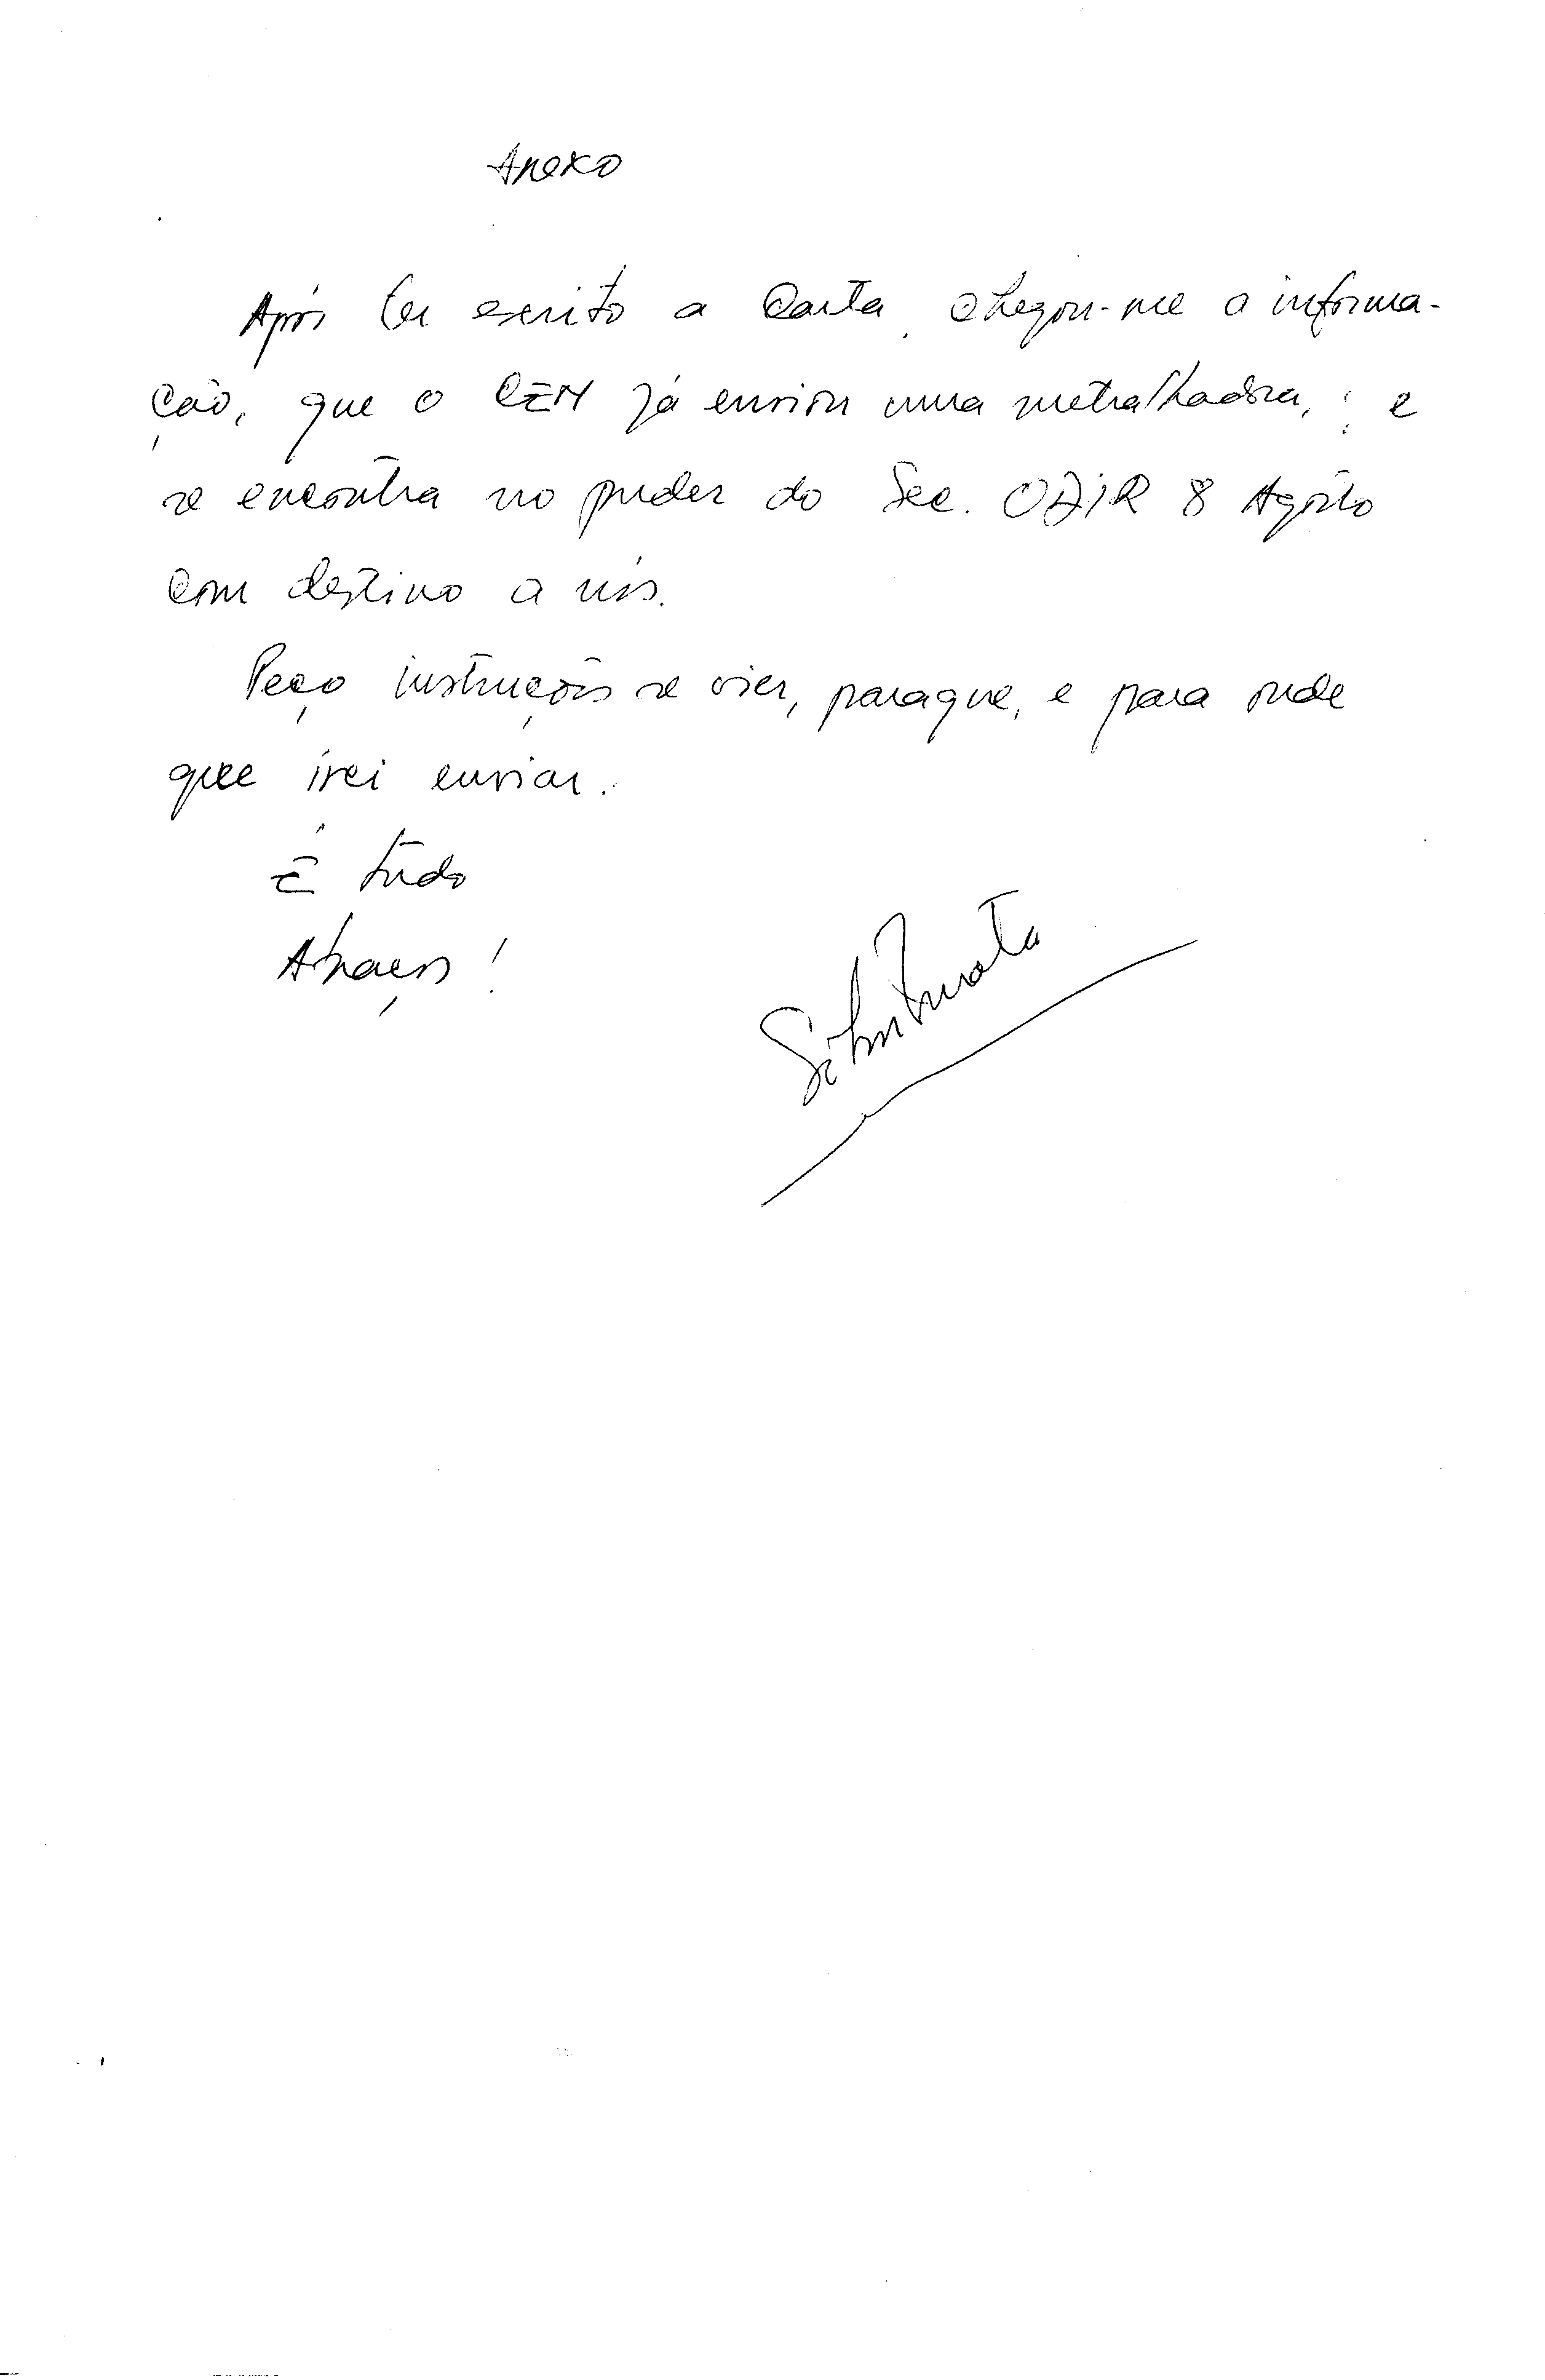 Anexo
Após ter escrito a Carta, chegou-me a informa-
ção, que o CEM já enviou uma metralhadora, e
se encontra no puder do Sec. ODIR 8 Agosto
com destino a nós.
Peço instruções se vier, paraque, e para onde
que irei enviar.
É tudo
Abraços!